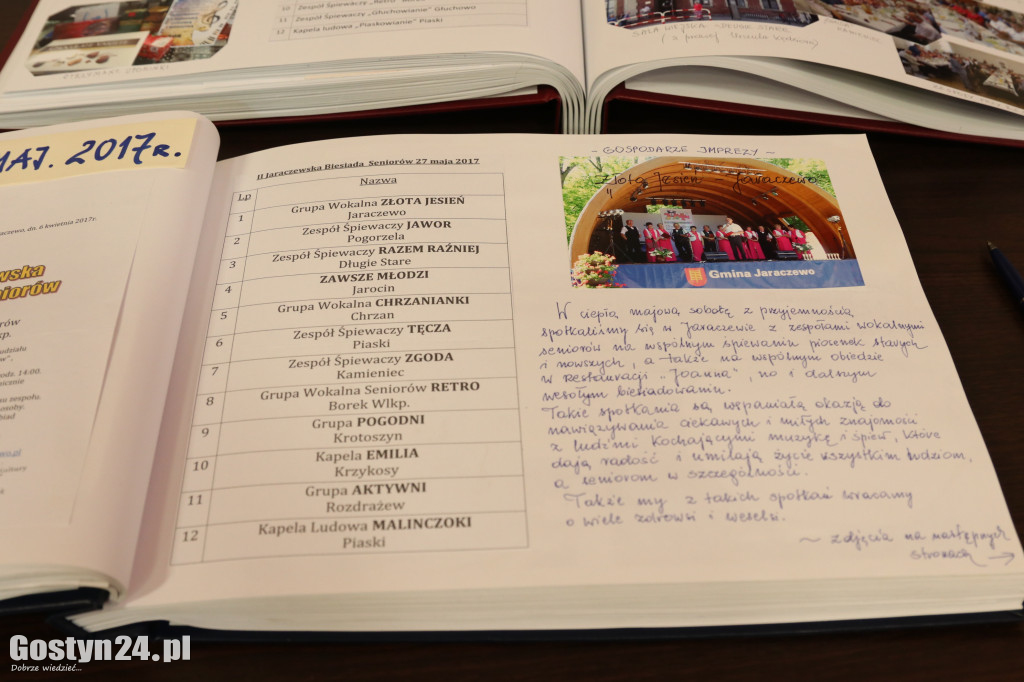 10 Zespół Śpiewaczy „Retro"
11 Zespół Śpiewaczy „Głuchowianie" Głuchowo
12 Kapela ludowa „Piaskowianie" Piaski
MAJ. 2017r.
dn. 6 kwietnia 2017r.
II Jaraczewska Biesiada Seniorów 27 maja 2017
Lp Nazwa
1 Grupa Wokalna ZŁOTA JESIEŃ
Jaraczewo
2 Zespół Śpiewaczy JAWOR
Pogorzela
3 Zespół Śpiewaczy RAZEM RAŹNIEJ
Długie Stare
4 ZAWSZE MŁODZI
Jarocin
5 Grupa Wokalna CHRZANIANKI
Chrzan
6 Zespół Śpiewaczy TĘCZA
Piaski
7 Zespół Śpiewaczy ZGODA
Kamieniec
8 Grupa Wokalna Seniorów RETRO
Borek Wlkp.
9 Grupa POGODNI
Krotoszyn
10 Kapela EMILIA
Krzykosy
11 Grupa AKTYWNI
Rozdrażew
12 Kapela Ludowa MALINCZOKI
Piaski
- GOSPODARZE IMPREZY -
"Złota Jesień" Jaraczewo
Gmina Jaraczewo
W ciepłą majową sobotę z przyjemnością
spotkaliśmy się w Jaraczewie z zespołami wokalnymi
seniorów na wspólnym śpiewaniu piosenek starych
i nowszych, a także na wspólnym obiedzie
w restauracji „Joanna", no i dalszym
wesołym biesiadowaniu.
Takie spotkania są wspaniałą okazją do
nawiązywania ciekawych i miłych znajomości
z ludźmi kochającymi muzykę i śpiew, które
dają radość i umilają życie wszystkim ludziom,
a seniorom w szczególności.
Także my z takich spotkań wracamy
o wiele zdrowsi i weselsi.
~ zdjęcia na następnych
stronach →
Gostyn24.pl
Dobrze wiedzieć...